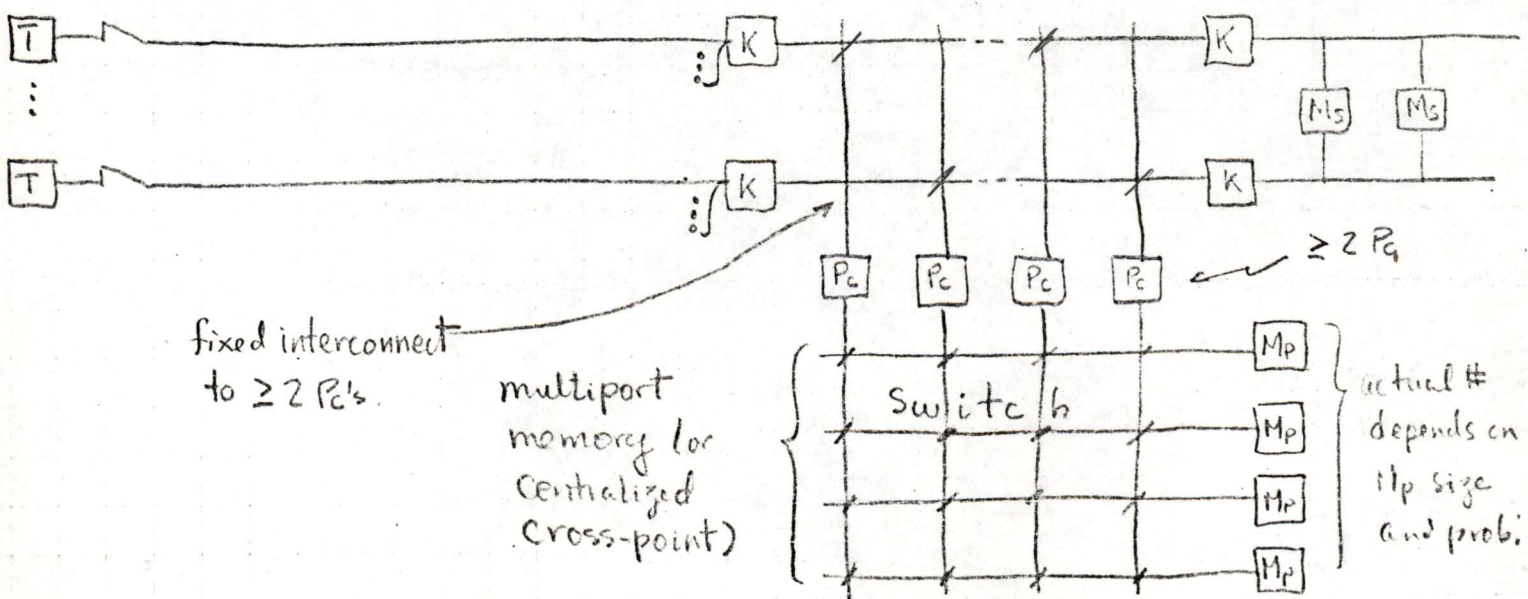 T K K
Ms Ms
T K K
≥ 2 Pc
Pc Pc Pc Pc
fixed interconnect
to ≥ 2 Pc's.
multiport
memory (or
centralized
cross-point)
Switch
Mp
Mp
Mp
Mp
actual #
depends on
Mp size
and prob.